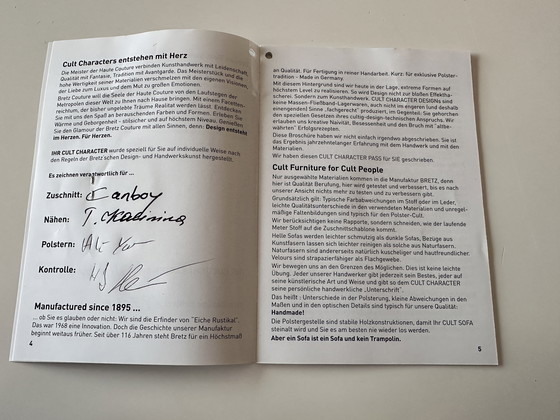 Cult Characters entstehen mit Herz
Die Meister der Haute Couture verbinden Kunsthandwerk mit Leidenschaft,
Qualität mit Fantasie, Tradition mit Avantgarde. Das Meisterstück und die
hohe Wertigkeit seiner Materialien verschmelzen mit den eigenen Visionen,
der Liebe zum Luxus und dem Mut zu großen Emotionen.
Bretz Couture will die Seele der Haute Couture von den Laufstegen der
Metropolen dieser Welt zu Ihnen nach Hause bringen. Mit einem Facetten-
reichtum, der bisher ungelebte Träume Realität werden lässt. Entdecken
Sie mit uns den Spaß an berauschenden Farben und Formen. Erleben Sie
Wärme und Geborgenheit - stilsicher und auf höchstem Niveau. Genießen
Sie den Glamour der Bretz Couture mit allen Sinnen, denn: Design entsteht
im Herzen. Für Herzen.
IHR CULT CHARACTER wurde speziell für Sie auf individuelle Weise nach
den Regeln der Bretz'schen Design- und Handwerkskunst hergestellt.
Es zeichnen verantwortlich für ...
Zuschnitt:
Nähen:
Polstern:
Kontrolle:
Manufactured since 1895 ...
... ob Sie es glauben oder nicht: Wir sind die Erfinder von "Eiche Rustikal".
Das war 1968 eine Innovation. Doch die Geschichte unserer Manufaktur
beginnt weitaus früher. Seit über 116 Jahren steht Bretz für ein Höchstmaß
4
an Qualität. Für Fertigung in reiner Handarbeit. Kurz: für exklusive Polster-
tradition - Made in Germany.
Mit diesem Hintergrund sind wir heute in der Lage, extreme Formen auf
höchstem Level zu realisieren. So wird Design nicht zur bloßen Effektha-
scherei. Sondern zum Kunsthandwerk. CULT CHARACTER DESIGNS sind
keine Massen-Fließband-Lagerware, auch nicht im engeren (und deshalb
einengenden) Sinne „fachgerecht" produziert, im Gegenteil: Sie gehorchen
den speziellen Gesetzen ihres cultig-design-technischen Anspruchs. Wir
erlauben uns kreative Naivität, Besessenheit und den Bruch mit "altbe-
währten" Erfolgsrezepten.
Diese Broschüre haben wir nicht einfach irgendwo abgeschrieben. Sie ist
das Ergebnis jahrzehntelanger Erfahrung mit dem Handwerk und mit den
Materialien.
Wir haben diesen CULT CHARACTER PASS für SIE geschrieben.
Cult Furniture for Cult People
Nur ausgewählte Materialien kommen in die Manufaktur BRETZ, denn
hier ist Qualität Berufung, hier wird getestet und verbessert, bis es nach
unserer Ansicht nichts mehr zu testen und zu verbessern gibt.
Grundsätzlich gilt: Typische Farbabweichungen im Stoff oder im Leder,
leichte Qualitätsunterschiede in den verwendeten Materialien und unregel-
mäßige Faltenbildungen sind typisch für den Polster-Cult.
Wir berücksichtigen keine Rapporte, sondern schneiden, wie der laufende
Meter Stoff auf die Zuschnittschablone kommt.
Helle Sofas werden leichter schmutzig als dunkle Sofas, Bezüge aus
Kunstfasern lassen sich leichter reinigen als solche aus Naturfasern.
Naturfasern sind andererseits natürlich kuscheliger und hautfreundlicher.
Velours sind strapazierfähiger als Flachgewebe.
Wir bewegen uns an den Grenzen des Möglichen. Dies ist keine leichte
Übung. Jeder unserer Handwerker gibt jederzeit sein Bestes, jeder auf
seine künstlerische Art und Weise und gibt so dem CULT CHARACTER
seine persönliche handwerkliche „Unterschrift".
Das heißt : Unterschiede in der Polsterung, kleine Abweichungen in den
Maßen und in den optischen Details sind typisch für unsere Qualität:
Handmade!
Die Polstergestelle sind stabile Holzkonstruktionen, damit Ihr CULT SOFA
steinalt wird und Sie es am besten nie wieder los werden.
Aber ein Sofa ist ein Sofa und kein Trampolin.
5